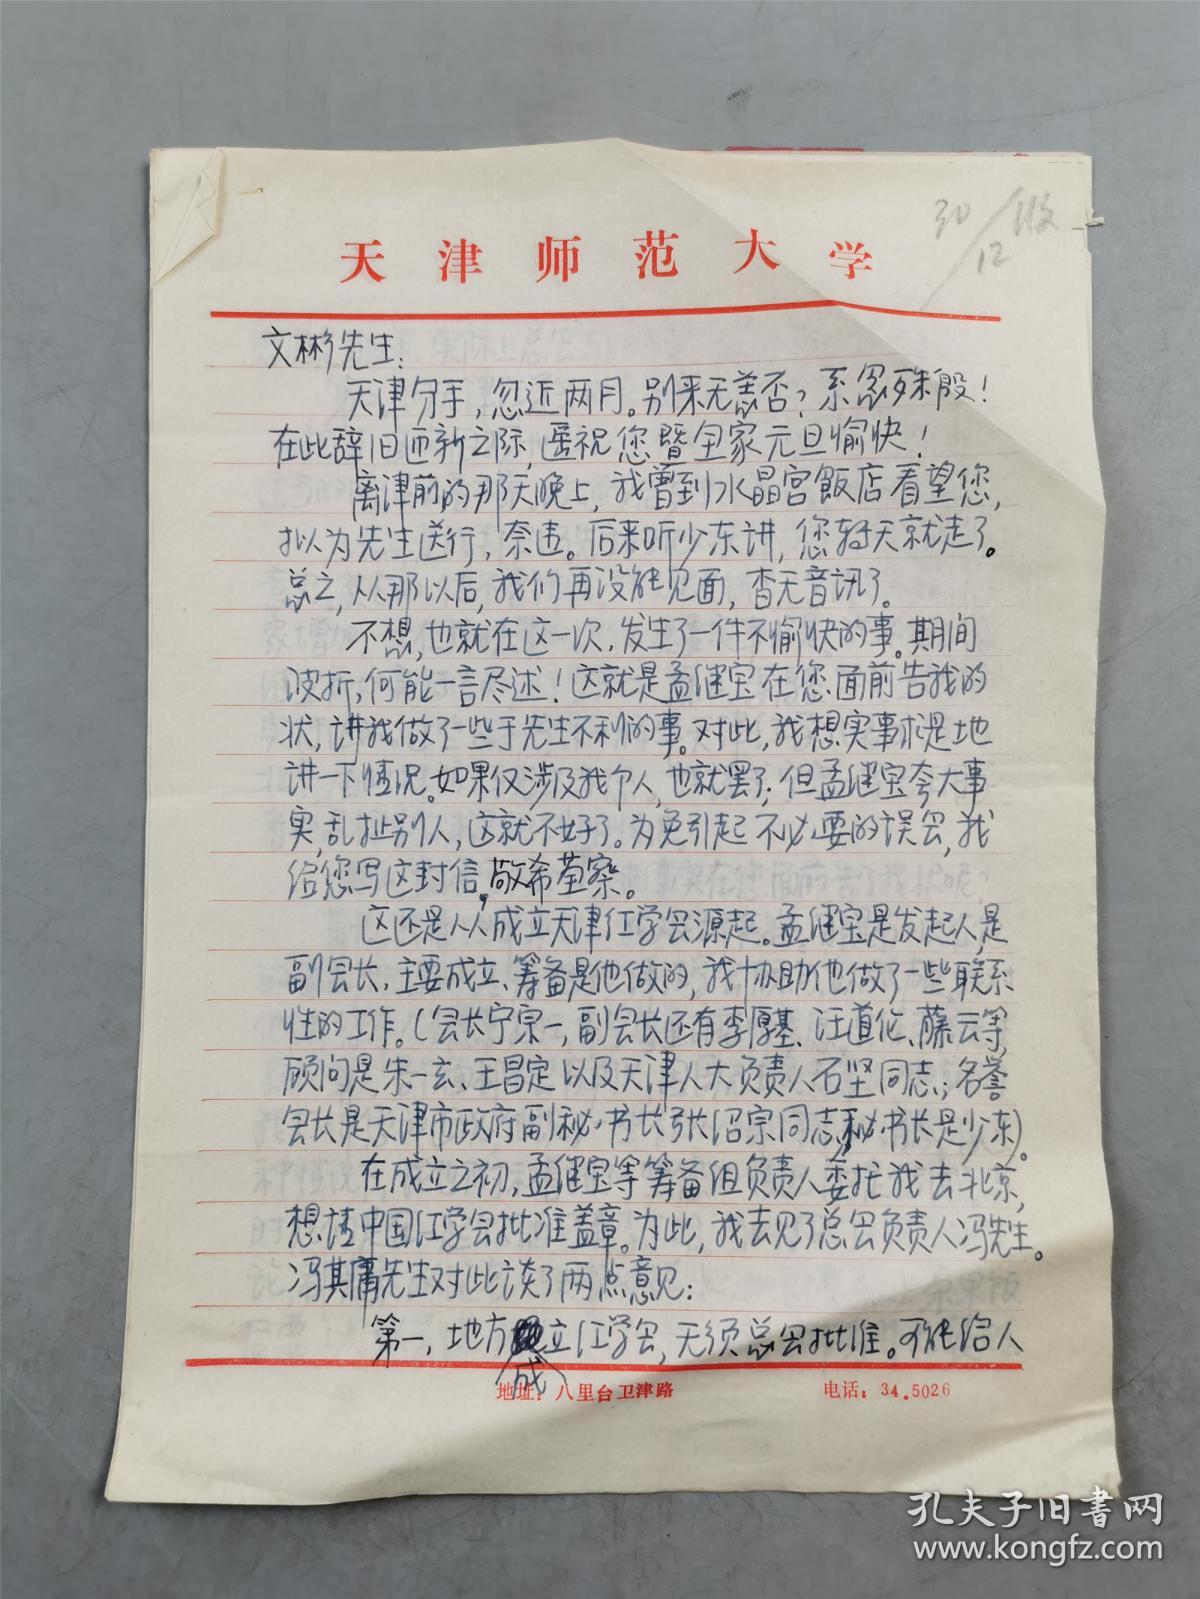 30/12 收
天津师范大学
文彬先生：
天津分手，忽近两月。别来无恙否？系念殊殷！
在此辞旧迎新之际，遥祝您暨全家元旦愉快！
离津前的那天晚上，我曾到水晶宫饭店看望您，
拟为先生送行，奈违。后来听少东讲，您转天就走了。
总之，从那以后，我们再没能见面，杳无音讯了。
不想，也就在这一次，发生了一件不愉快的事。其间
波折，何能一言尽述！这就是孟继宝在您面前告我的
状，讲我做了一些于先生不利的事。对此，我想实事求是地
讲一下情况。如果仅涉及我个人，也就罢了；但孟继宝夸大事
实，乱扯别人，这就不好了。为免引起不必要的误会，我
给您写这封信。敬希荃察。
这还是从成立天津红学会源起。孟继宝是发起人，是
副会长，主要成立、筹备是他做的，我协助他做了一些联系
性的工作。（会长宁宗一，副会长还有李厚基、汪道伦、滕云等，
顾问是朱一玄、王昌定以及天津人大负责人石坚同志；名誉
会长是天津市政府副秘书长张绍宗同志，秘书长是少东）。
在成立之初，孟继宝等筹备组负责人委托我去北京，
想请中国红学会批准盖章。为此，我去见了总会负责人冯先生。
冯其庸先生对此谈了两点意见：
第一，地方成立红学会，无须总会批准。可能给人
地址：八里台卫津路 电话：34.5026
孔夫子旧书网
www.kongfz.com